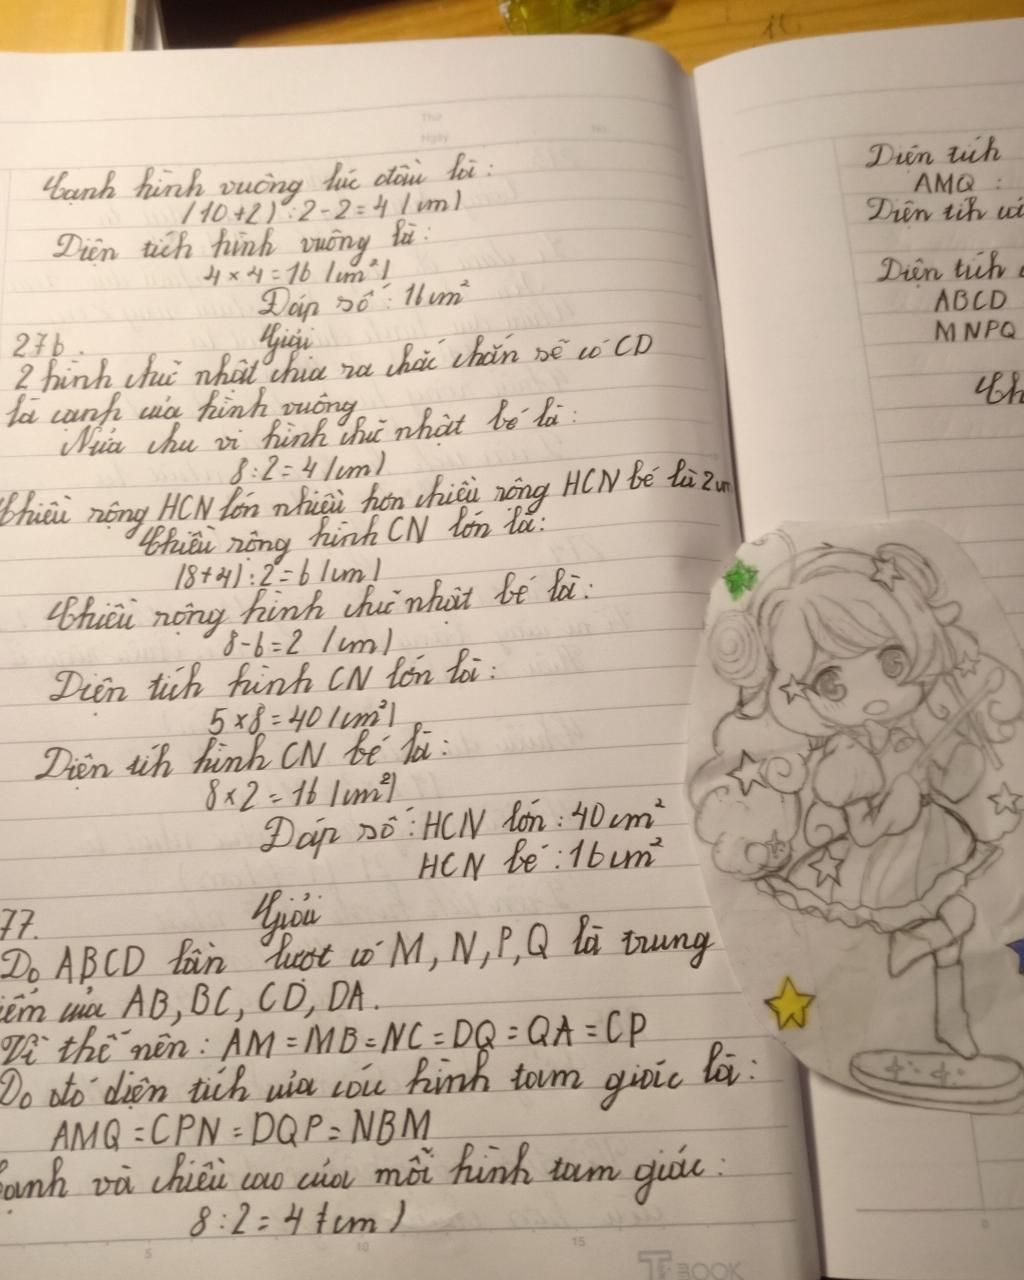 Thứ
Ngày
No.
Cạnh hình vuông lúc đầu là:
(10+2) : 2 - 2 = 4 (cm)
Diện tích hình vuông là:
4 × 4 = 16 (cm²)
Đáp số : 16cm²
276. Giải
2 hình chữ nhật chia ra chắc chắn sẽ có CD
là cạnh của hình vuông
Nửa chu vi hình chữ nhật bé là:
8 : 2 = 4 (cm)
Chiều rộng HCN lớn nhiều hơn chiều rộng HCN bé là 2cm
Chiều rộng hình CN lớn là:
(8+4) : 2 = 6 (cm)
Chiều rộng hình chữ nhật bé là:
8 - 6 = 2 (cm)
Diện tích hình CN lớn là:
5 × 8 = 40 (cm²)
Diện tích hình CN bé là:
8 × 2 = 16 (cm²)
Đáp số : HCN lớn : 40cm²
HCN bé : 16cm²
77. Giải
Do ABCD lần lượt có M, N, P, Q là trung
điểm của AB, BC, CD, DA.
Vì thế nên : AM = MB = NC = DQ = QA = CP
Do đó diện tích của các hình tam giác là:
AMQ = CPN = DQP = NBM
Cạnh và chiều cao của mỗi hình tam giác:
8 : 2 = 4 (cm)
5 10 15
BOOK
Diện tích
AMQ :
Diện tích
Diện tích
ABCD
MNPQ